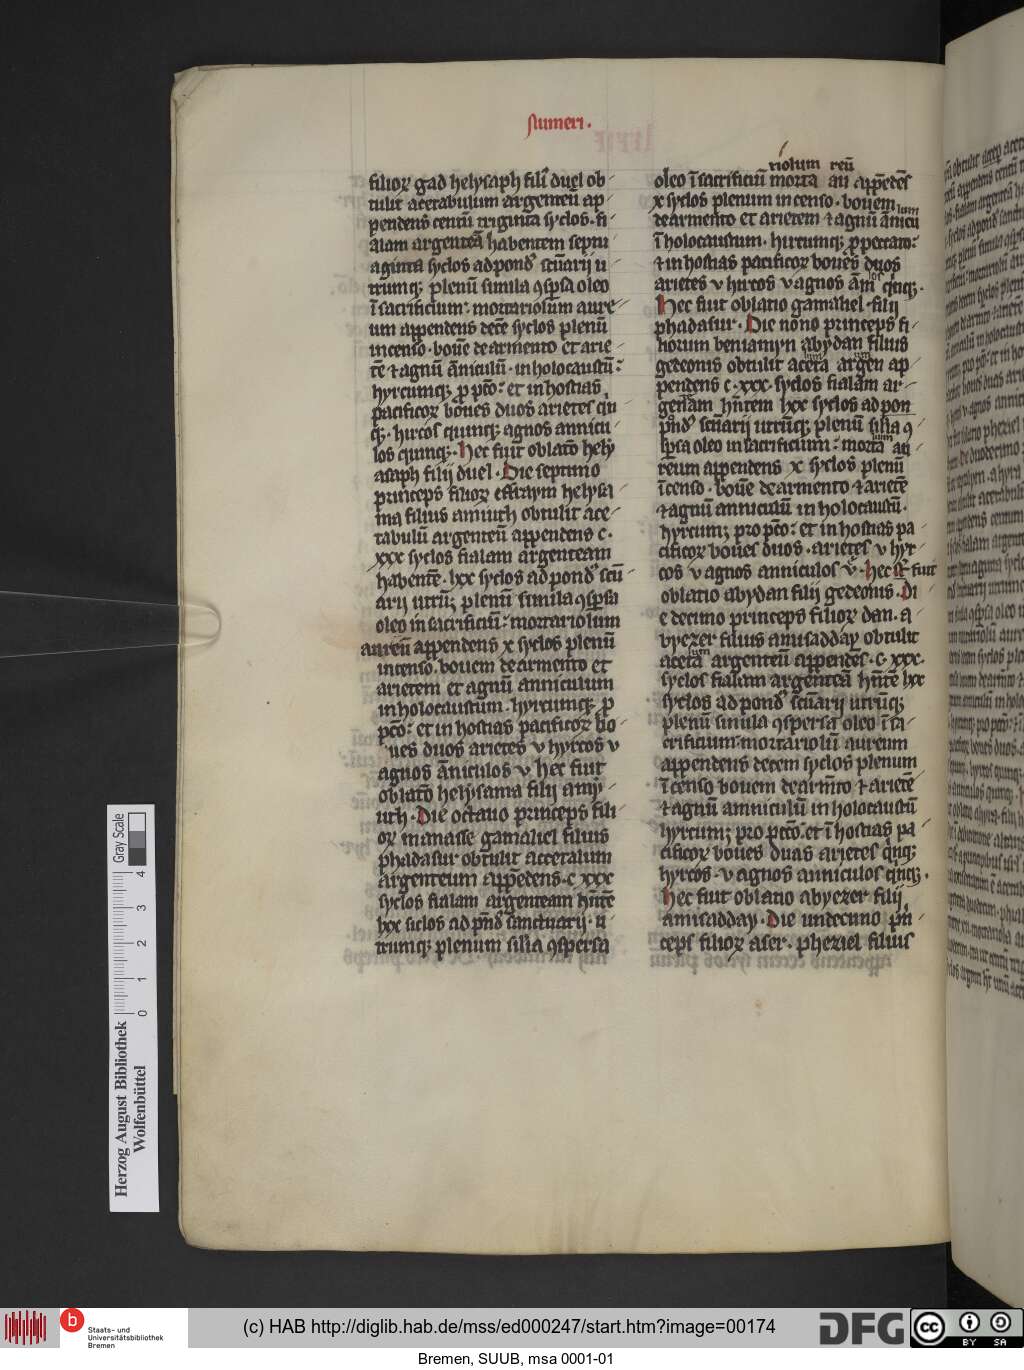 Numeri.
filioꝝ gad helysaph fili᷒ duel ob
tulit acetabulum argenteū ap
pendens centū triginta syclos. fi
alam argenteā habentem septu
aginta syclos ad pond᷒ sc̄uarij u
trūmqꝫ plenū simila ꝯsp̄sa oleo
ī sacrificium. mortariolum aure
um appendens decē syclos plenū
incenso. bouē de armento et arie
tē ⁊ agnū āniculū. in holocaustū:
hyrcumqꝫ ꝓ pc̄to: et in hostias
pacificoꝝ boues duos arietes qin
qꝫ. hircos quinqꝫ agnos annicu
los quinqꝫ. Hec fuit oblatō hely
asaph filij duel. Die septimo
princeps filioꝝ effraym helysa
ma filius amiuth obtulit ace
tabulū argenteū appendens c.
xxx syclos fialam argenteam
habentē. lxx syclos ad pond᷒ scū
arij utrūqꝫ plenū simila ꝯsp̄sa
oleo in sacrificiū: mortariolum
aureū appendens x syclos plenū
incenso. bouem de armento et
arietem et agnū anniculum
in holocaustum. hyrcumqꝫ ꝓ
pc̄to: et in hostias pacificoꝝ bo
ues duos arietes v hyrcos v
agnos āniculos v. hec fuit
oblatō helysama filij amy
uth. Die octauo princeps fili
oꝝ manasse gamaliel filius
phadasur obtulit accetalum
argenteum appēdens. c xxx
syclos fialam argenteam hn̄tē
lxx siclos ad pn̄d᷒ sanctuarij. u
trumqꝫ plenum silīa ꝯspersa
riolum reū
oleo ī sacrificiū morta au appēdēs
x syclos plenum incenso. bouem
lum
de armento et arietem ⁊ agnū ānicu
ī holocaustum. hircumqꝫ ꝓ peccato:
⁊ in hostias pacificoꝝ boues duos
arietes v hircos v agnos āni los qinqꝫ.
Hec fuit oblatio gamaliel. filij
phadasur. Die nono princeps fi
liorum beniamyn abydan filius
gedeonis obtulit aceta argen ap
pendens c. xxx. syclos fialam ar
gentam hn̄tem lxx syclos ad pon
pond᷒ scūarij utrūqꝫ plenū silīa ꝯ
sp̄sa oleo in sacrificium: morta au
reum appendens x syclos plenū
īcenso. bouē de armento ⁊ arietē
⁊ agnū anniculū in holocaustū.
hyrcumqꝫ pro pc̄to: et in hostias pa
cificoꝝ boues duos. arietes v hyr
cos v agnos anniculos v. Hec fuit
oblatio abydan filij gedeonis. Di
e decimo princeps filioꝝ dan. a
byezer filius amisadday obtulit
aceta bulum argenteū appendēs. c. xxx.
syclos fialam argenteā hn̄tē lxx
syclos ad pond᷒ scūarij utrūqꝫ
plenū simila ꝯspersa oleo ī sa
crificium. mortariolū aureum
appendens decem syclos plenum
īcenso bouem de arm̄to ⁊ arietē
⁊ agnū anniculū in holocaustū
hyrcumqꝫ pro pc̄cō. et ī hostias pa
cificoꝝ boues duas arietes qinqꝫ
hyrcos. v agnos anniculos qinqꝫ.
Hec fuit oblatio abyezer filij
amisadday. Die undecimo prin
ceps filioꝝ aser. pheziel filius
Gray Scale
0 1 2 3 4
Herzog August Bibliothek
Wolfenbüttel
b
Staats- und
Universitätsbibliothek
Bremen
(c) HAB http://diglib.hab.de/mss/ed000247/start.htm?image=00174
DFG
cc
BY SA
Bremen, SUUB, msa 0001-01